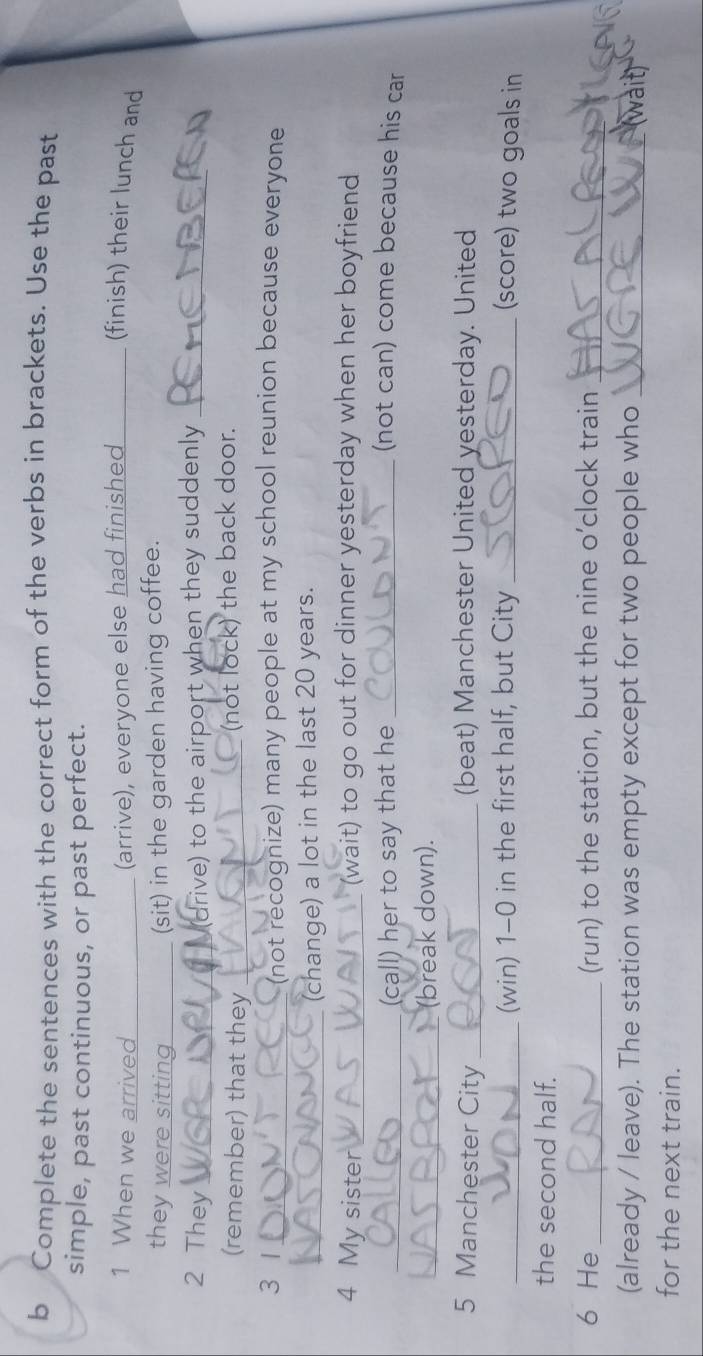 b Complete the sentences with the correct form of the verbs in brackets. Use the past
simple, past continuous, or past perfect.
1 When we arrived (arrive), everyone else had finished (finish) their lunch and
they were sitting (sit) in the garden having coffee.
2 They WERE DRIVING (drive) to the airport when they suddenly REMEMBERED
(remember) that they HAVEN'T LOCKED (not lock) the back door.
3 I DIDN'T RECOGNIZE (not recognize) many people at my school reunion because everyone
HAS CHANGED (change) a lot in the last 20 years.
4 My sister WAS WAITING (wait) to go out for dinner yesterday when her boyfriend
CALLED (call) her to say that he COULDN'T (not can) come because his car
WAS (break down).
5 Manchester City BEAT (beat) Manchester United yesterday. United
WON (win) 1-0 in the first half, but City SCORED (score) two goals in
the second half.
6 He RAN (run) to the station, but the nine o'clock train HAS ALREADY
(already / leave). The station was empty except for two people who WERE WAITING (wait)
for the next train.